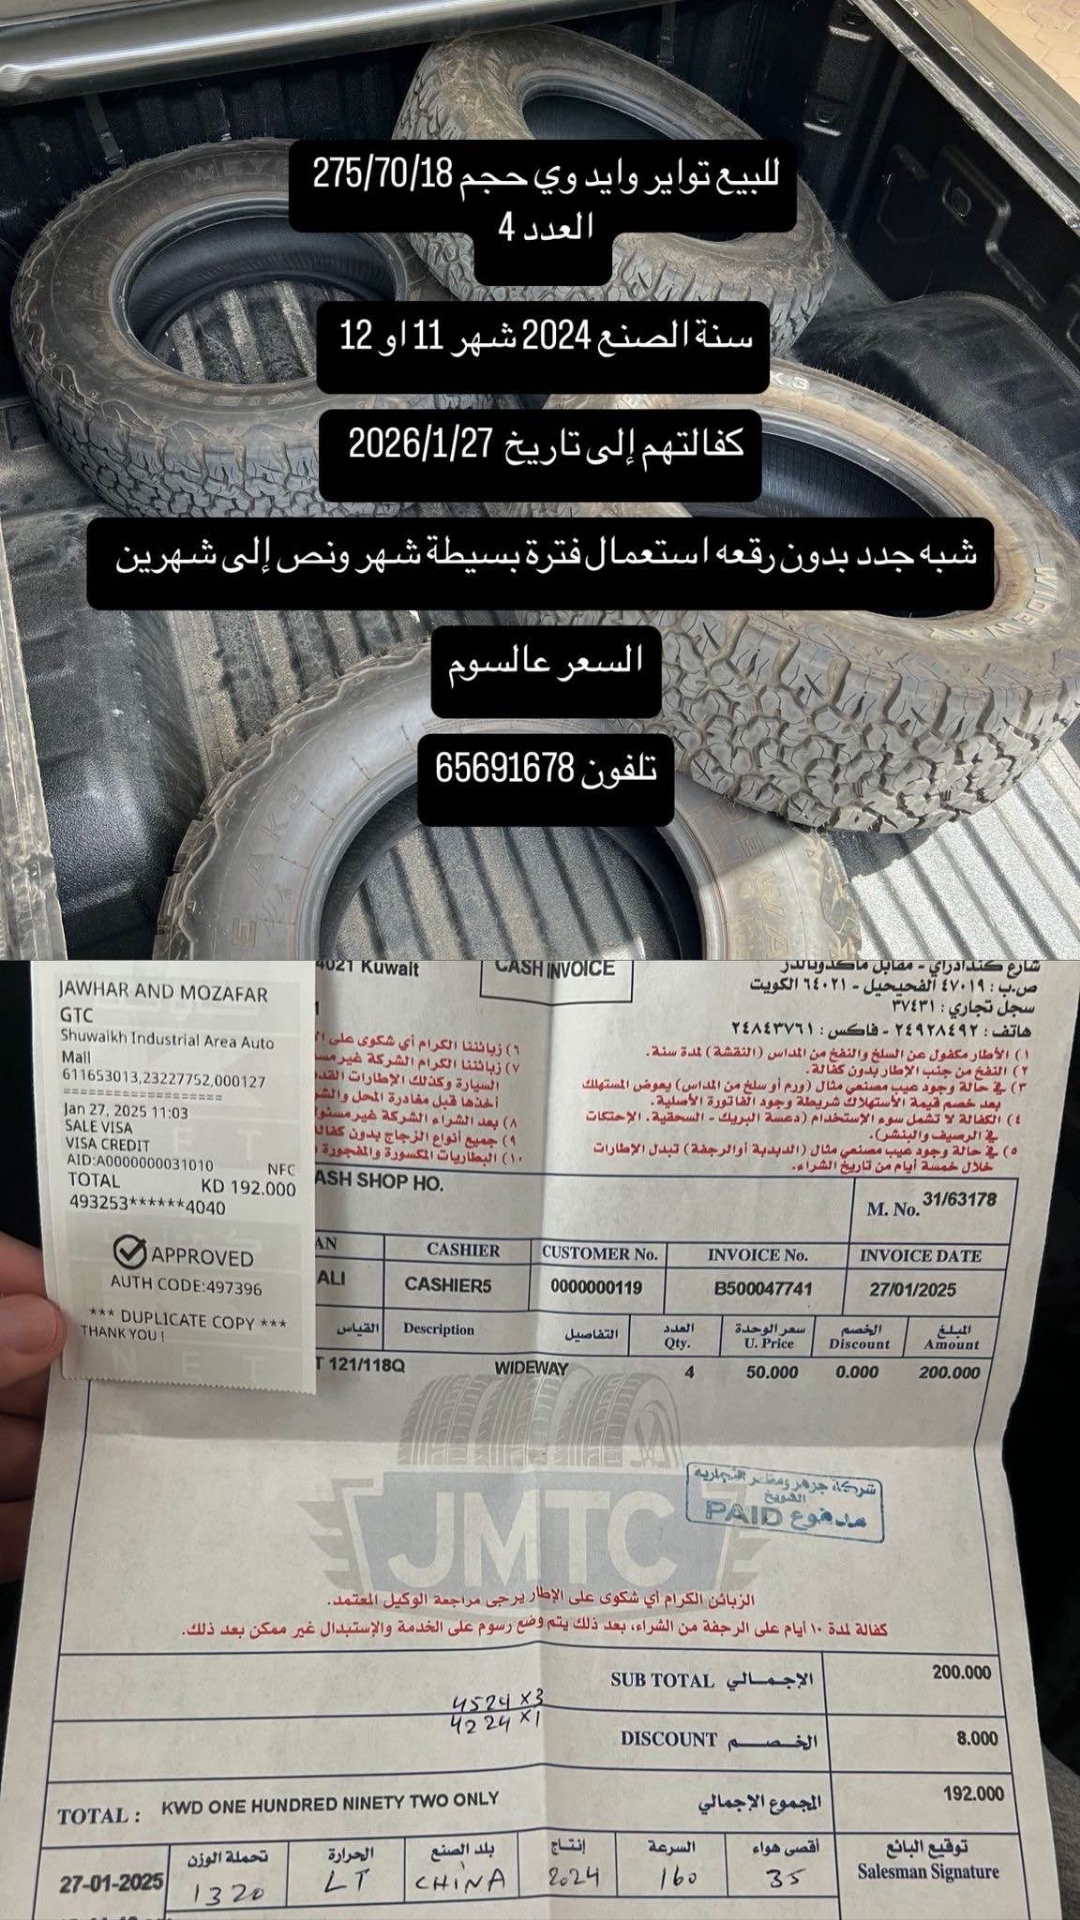 للبيع تواير وايد وي حجم 275/70/18
العدد 4
سنة الصنع 2024 شهر 11 او 12
كفالتهم إلى تاريخ 2026/1/27
شبه جدد بدون رقعه استعمال فترة بسيطة شهر ونص إلى شهرين
السعر عالسوم
تلفون 65691678
K3
WIDEWAY
JAWHAR AND MOZAFAR
GTC
Shuwaikh Industrial Area Auto
Mall
611653013,23227752,000127
====================
Jan 27, 2025 11:03
SALE VISA
VISA CREDIT
AID:A0000000031010 NFC
TOTAL KD 192.000
493253******4040
APPROVED
AUTH CODE:497396
*** DUPLICATE COPY ***
THANK YOU !
4021 Kuwait
CASH INVOICE
شارع كندادراي - مقابل ماكدونالدز
ص.ب : ٤٧٠١٩ الفحيحيل - ٦٤٠٢١ الكويت
سجل تجاري : ٣٧٤٣١
هاتف : ٢٤٩٢٨٤٩٢ - فاكس : ٢٤٨٤٣٧٦١
١) الأطار مكفول عن السلخ والنفخ من المداس (النقشة) لمدة سنة.
٢) النفخ من جنب الإطار بدون كفالة.
٣) في حالة وجود عيب مصنعي مثال (ورم أو سلخ من المداس) يعوض المستهلك
بعد خصم قيمة الأستهلاك شريطة وجود الفاتورة الأصلية.
٤) الكفالة لا تشمل سوء الإستخدام (دعسة البريك - السحقية. الإحتكاك
في الرصيف والبنشر).
٥) في حالة وجود عيب مصنعي مثال (الدبدبة أوالرجفة) تبدل الإطارات
خلال خمسة أيام من تاريخ الشراء.
٦) زبائننا الكرام أي شكوى على
٧) زبائننا الكرام الشركة غير
السيارة وكذلك الإطارات
أخذها قبل مغادرة المحل
٨) بعد الشراء الشركة غير
٩) جميع أنواع الزجاج بدون
١٠) البطاريات المكسورة والمفجورة
ASH SHOP HO.
M. No. 31/63178
AN CASHIER CUSTOMER No. INVOICE No. INVOICE DATE
ALI CASHIER5 0000000119 B500047741 27/01/2025
القياس Description التفاصيل العدد Qty. سعر الوحدة U. Price الخصم Discount المبلغ Amount
T 121/118Q WIDEWAY 4 50.000 0.000 200.000
JMTC
شركة جوهر ومظفر التجارية
الشويخ
PAID مدفوع
الزبائن الكرام أي شكوى على الإطار يرجى مراجعة الوكيل المعتمد.
كفالة لمدة ١٠ أيام على الرجفة من الشراء، بعد ذلك يتم وضع رسوم على الخدمة والإستبدال غير ممكن بعد ذلك.
SUB TOTAL الإجمالي 200.000
4524 x3
4224 x1
DISCOUNT الخصم 8.000
TOTAL : KWD ONE HUNDRED NINETY TWO ONLY المجموع الإجمالي 192.000
تحملة الوزن الحرارة بلد الصنع إنتاج السرعة أقصى هواء توقيع البائع
Salesman Signature
27-01-2025 1320 LT CHINA 2024 160 35